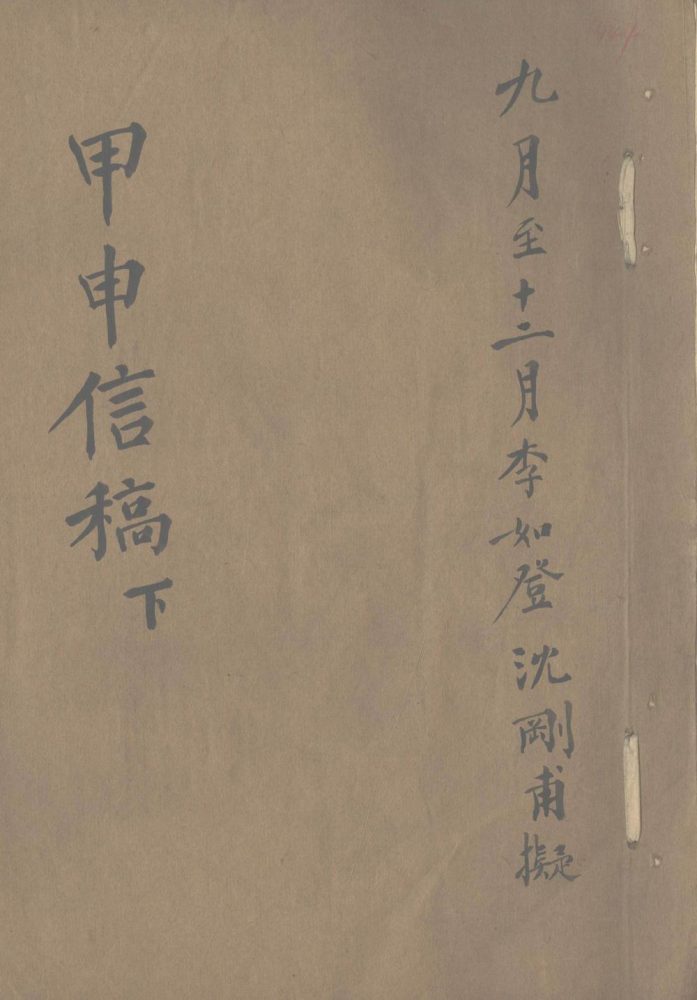 九月至十二月李如登沈剛甫擬
甲申信稿下